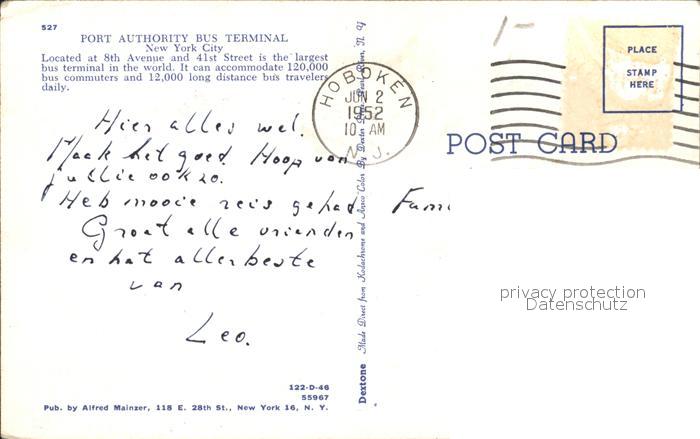 527
PORT AUTHORITY BUS TERMINAL
New York City
Located at 8th Avenue and 41st Street is the largest
bus terminal in the world. It can accommodate 120,000
bus commuters and 12,000 long distance bus travelers
daily.
Hier alles wel.
Maak het goed. Hoop van
jullie ook zo.
Heb mooie reis gehad
Groet alle vrienden
en het allerbeste
van
Leo.
122-D-46
55967
Pub. by Alfred Mainzer, 118 E. 28th St., New York 16, N. Y.
Dextone
Made Direct from Kodachrome and Ansco Color By Dexter Press, Pearl River, N. Y.
HOBOKEN
JUN 2
1952
10 AM
N. J.
1-
PLACE
STAMP
HERE
POST CARD
Fami
privacy protection
Datenschutz